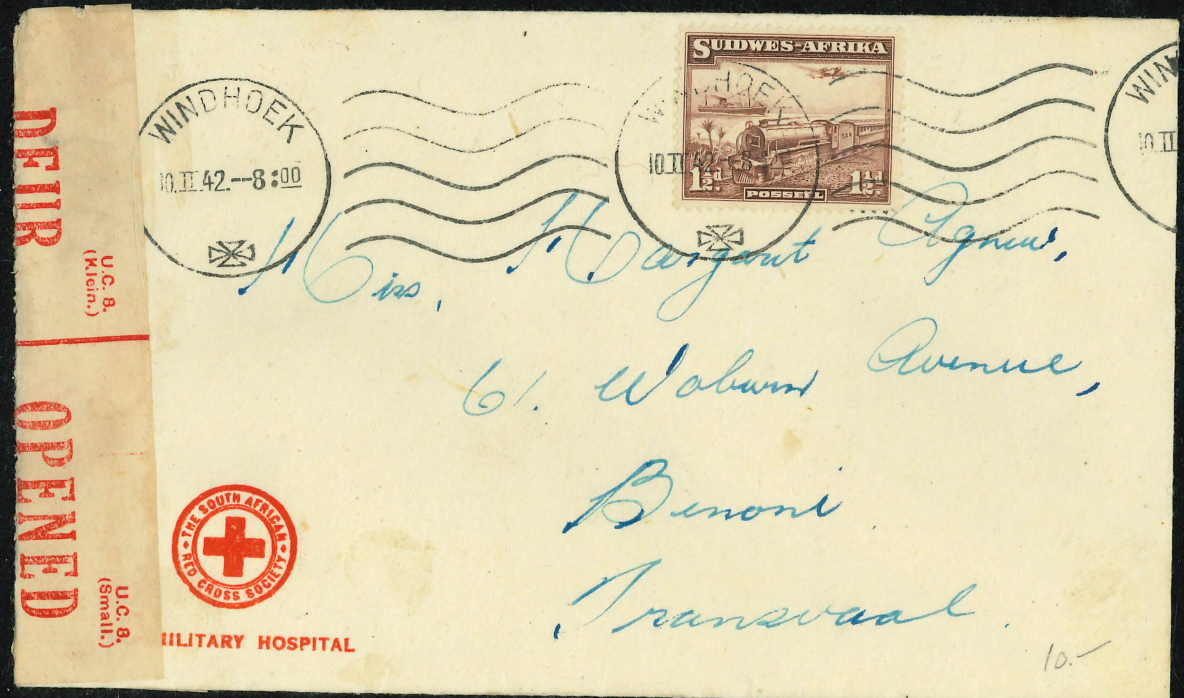 DEUR
U.C. 8.
(Klein.)
OPENED
U.C. 8.
(Small.)
WINDHOEK
10.II.42.--8:00
WINDHOEK
10.II.42.--8
WIN
10.II
SUIDWES-AFRIKA
1½d. POSSEËL 1½d.
Miss. Margaret Agnew,
61. Woburn Avenue,
Benoni
Transvaal.
THE SOUTH AFRICAN
RED CROSS SOCIETY
MILITARY HOSPITAL
10.-